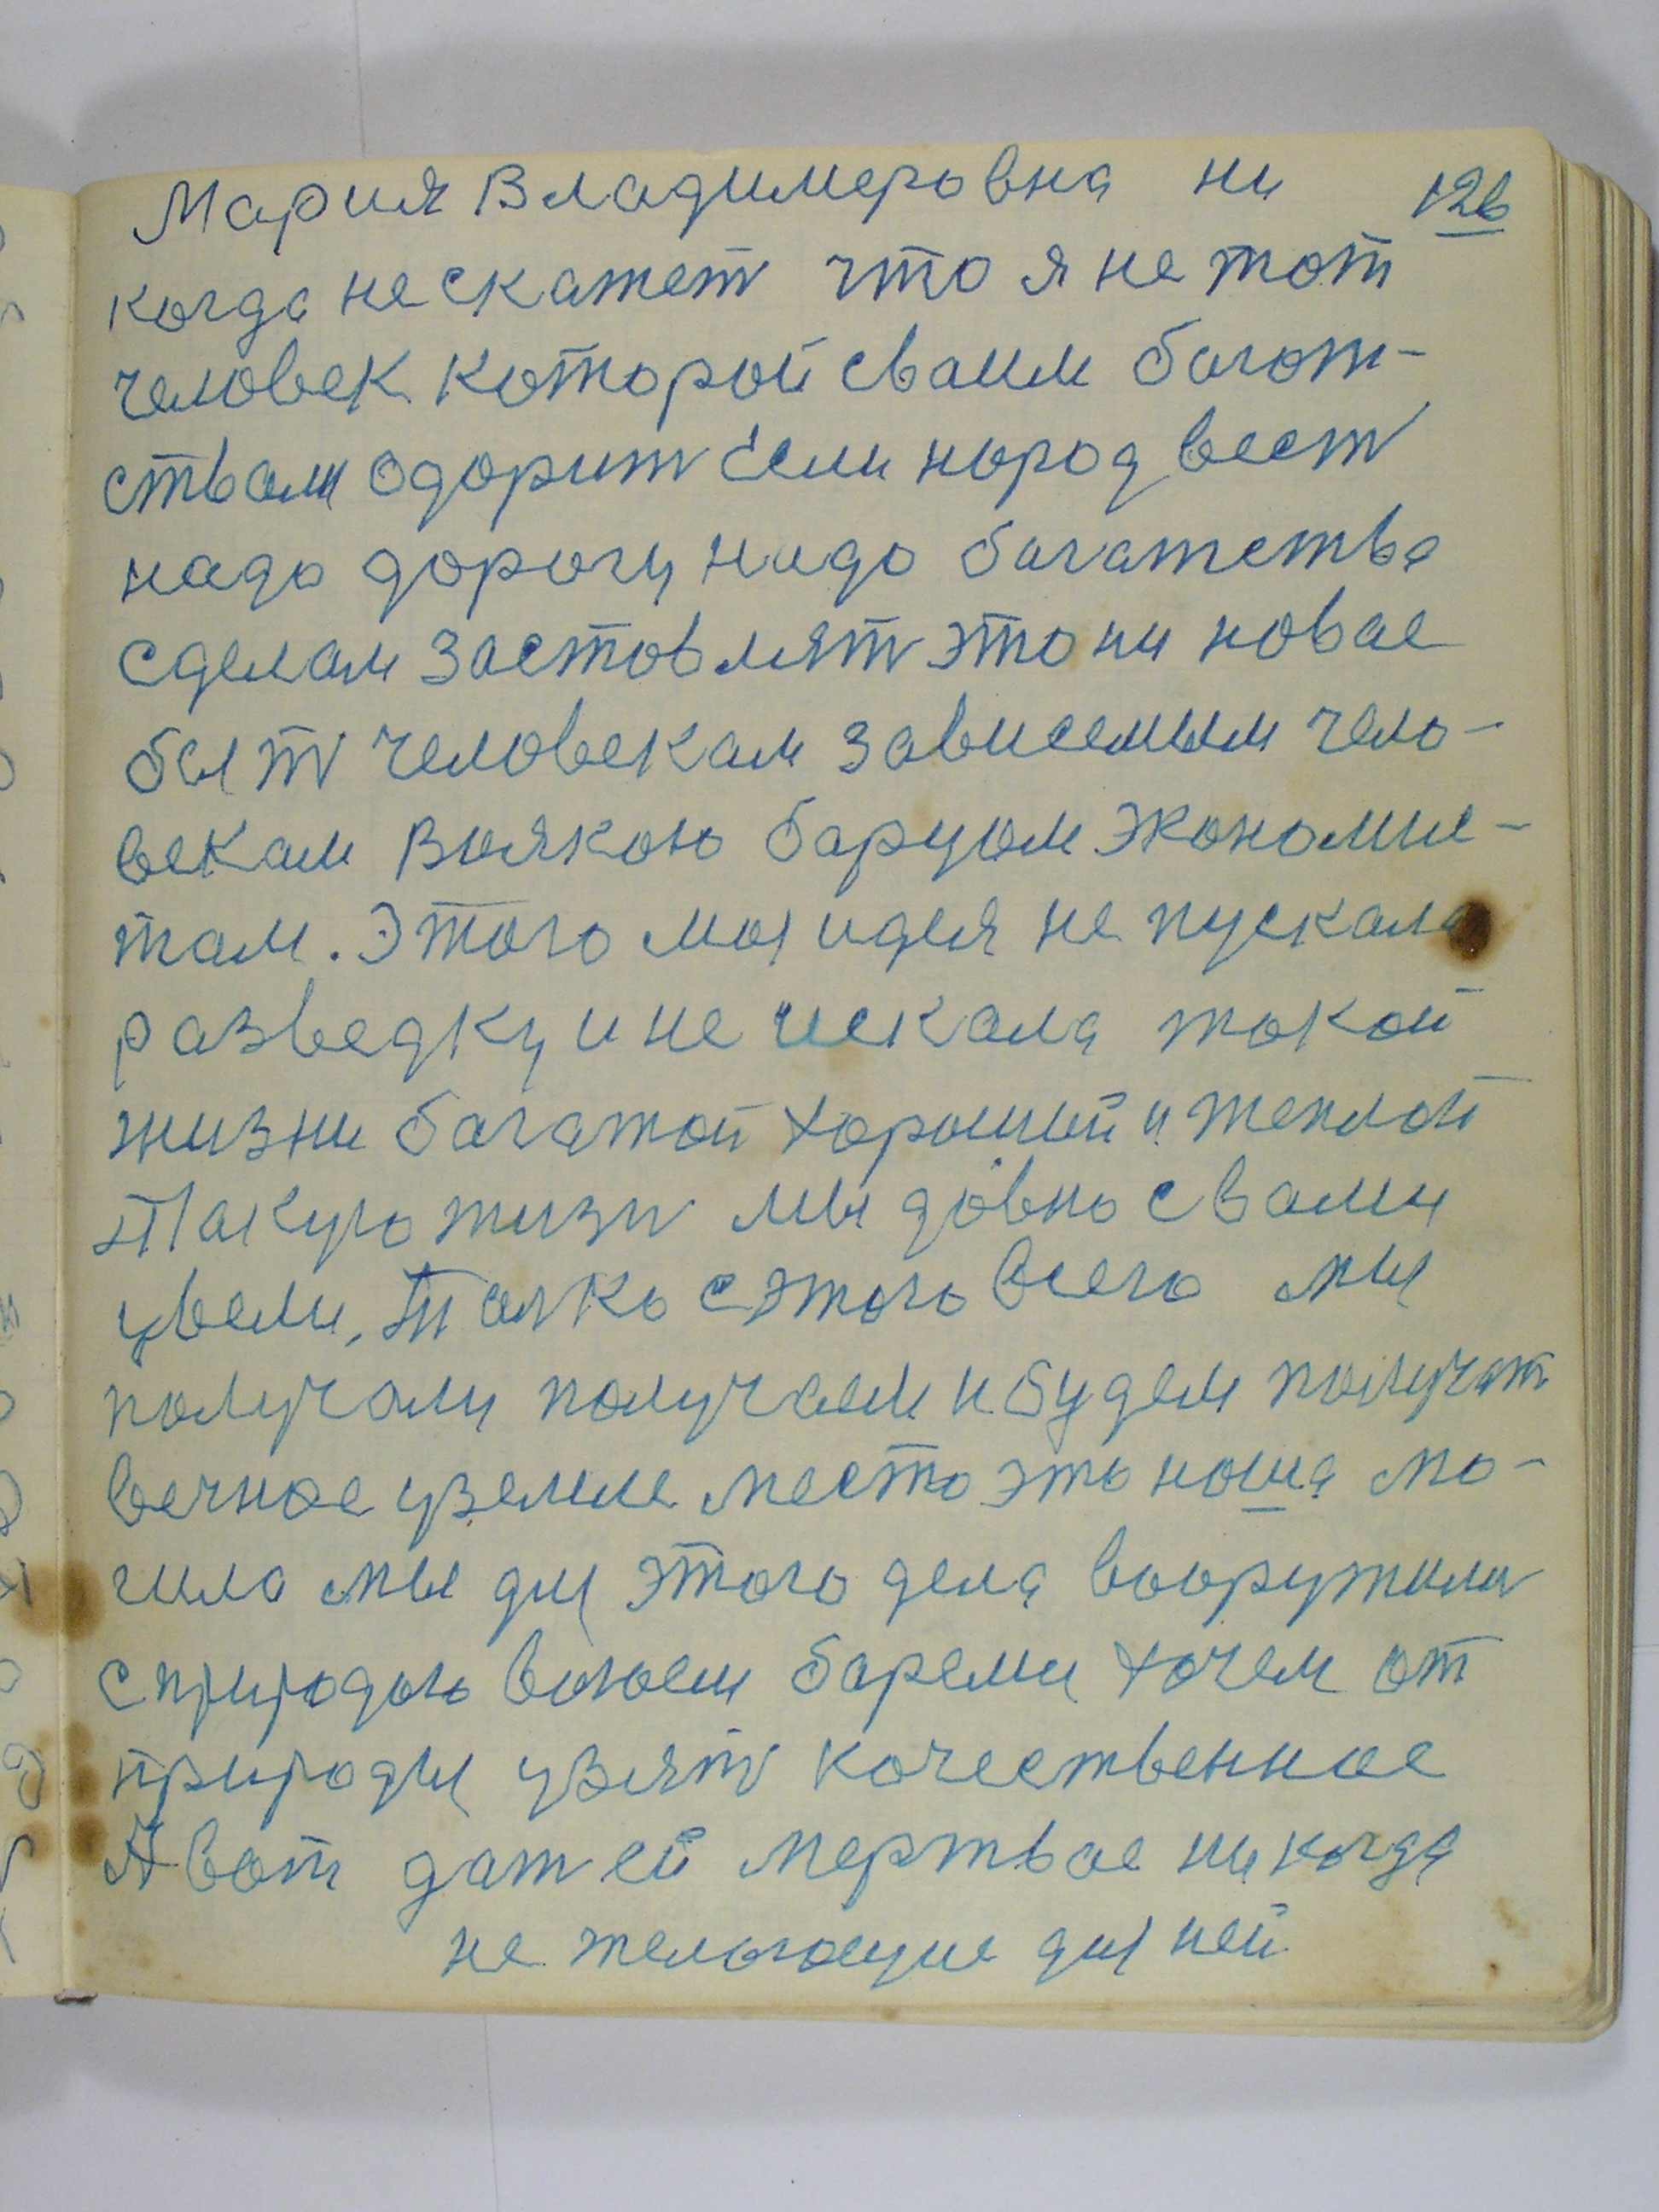 Мария Владимеровна ни
126
когда не скажет что я не тот
человек которой сваим богат-
ствами одорит Если народ вест
надо дорогу надо багатства
сделам заставлят это ни новае
быт человекам зависемым чело-
векам всякою барцом экономис-
там. Этого моя идея не пускала
разведку и не искала такой
жизни багатой хорошый и теплой
Такую жизн мы давно с вами
увели, Толко с этого всего мы
получали получаем и будем получат
вечнае уземле место это наша мо-
гила мы для этого дела вооружилис
с природою воюем баремся хочем от
природы узят качественное
А вот дат ей мертвае никогда
не желающие для ней